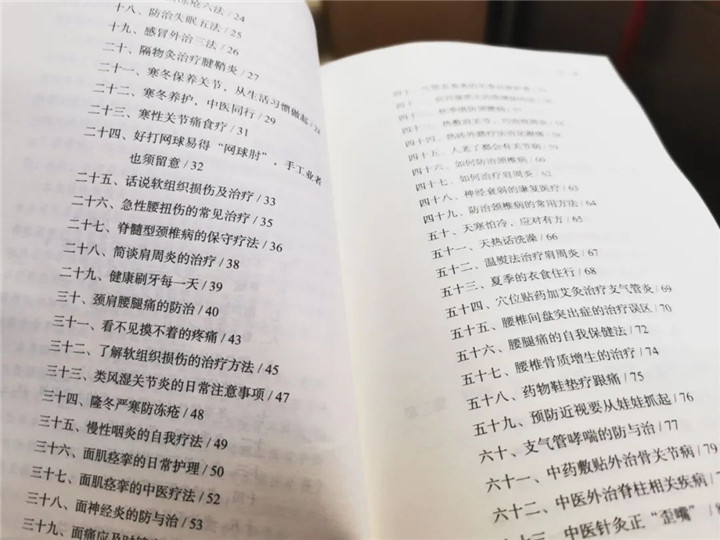 冻疮六法 / 24
十八、防治失眠五法 / 25
十九、感冒外治三法 / 26
二十、隔物灸治疗腱鞘炎 / 27
二十一、寒冬保养关节，从生活习惯做起 / 28
二十二、寒冬养护，中医同行 / 29
二十三、寒性关节痛食疗 / 31
二十四、好打网球易得“网球肘”，手工业者
也须留意 / 32
二十五、话说软组织损伤及治疗 / 33
二十六、急性腰扭伤的常见治疗 / 35
二十七、脊髓型颈椎病的保守疗法 / 36
二十八、简谈肩周炎的治疗 / 38
二十九、健康刷牙每一天 / 39
三十、颈肩腰腿痛的防治 / 40
三十一、看不见摸不着的疼痛 / 43
三十二、了解软组织损伤的治疗方法 / 45
三十三、类风湿关节炎的日常注意事项 / 47
三十四、隆冬严寒防冻疮 / 48
三十五、慢性咽炎的自我疗法 / 49
三十六、面肌痉挛的日常护理 / 50
三十七、面肌痉挛的中医疗法 / 52
三十八、面神经炎的防与治 / 53
三十九、面痛应及时
四十
四十
四十二、秋季谨防颈腰病
四十三、热敷前关节，巧治肩周炎
四十四、热砖外腾疗法治足跟痛
四十五、人老了都会有关节病
四十六、如何防治颈椎病 / 60
四十七、如何治疗肩周炎 / 62
四十八、神经衰弱的康复医疗 / 63
四十九、防治颈椎病的常用方法 / 64
五十、天寒怕冷，应对有方 / 65
五十一、天热话洗澡 / 66
五十二、温熨法治疗肩周炎 / 67
五十三、夏季的衣食住行 / 68
五十四、穴位贴药加艾灸治疗支气管炎 / 69
五十五、腰椎间盘突出症的治疗误区 / 70
五十六、腰腿痛的自我保健法 / 72
五十七、腰椎骨质增生的治疗 / 74
五十八、药物鞋垫疗跟痛 / 75
五十九、预防近视要从娃娃抓起 / 76
六十、支气管哮喘的防与治 / 77
六十一、中药敷贴外治骨关节病 / 79
六十二、中医外治脊柱相关疾病 /
六十三、中医针灸正“歪嘴” /